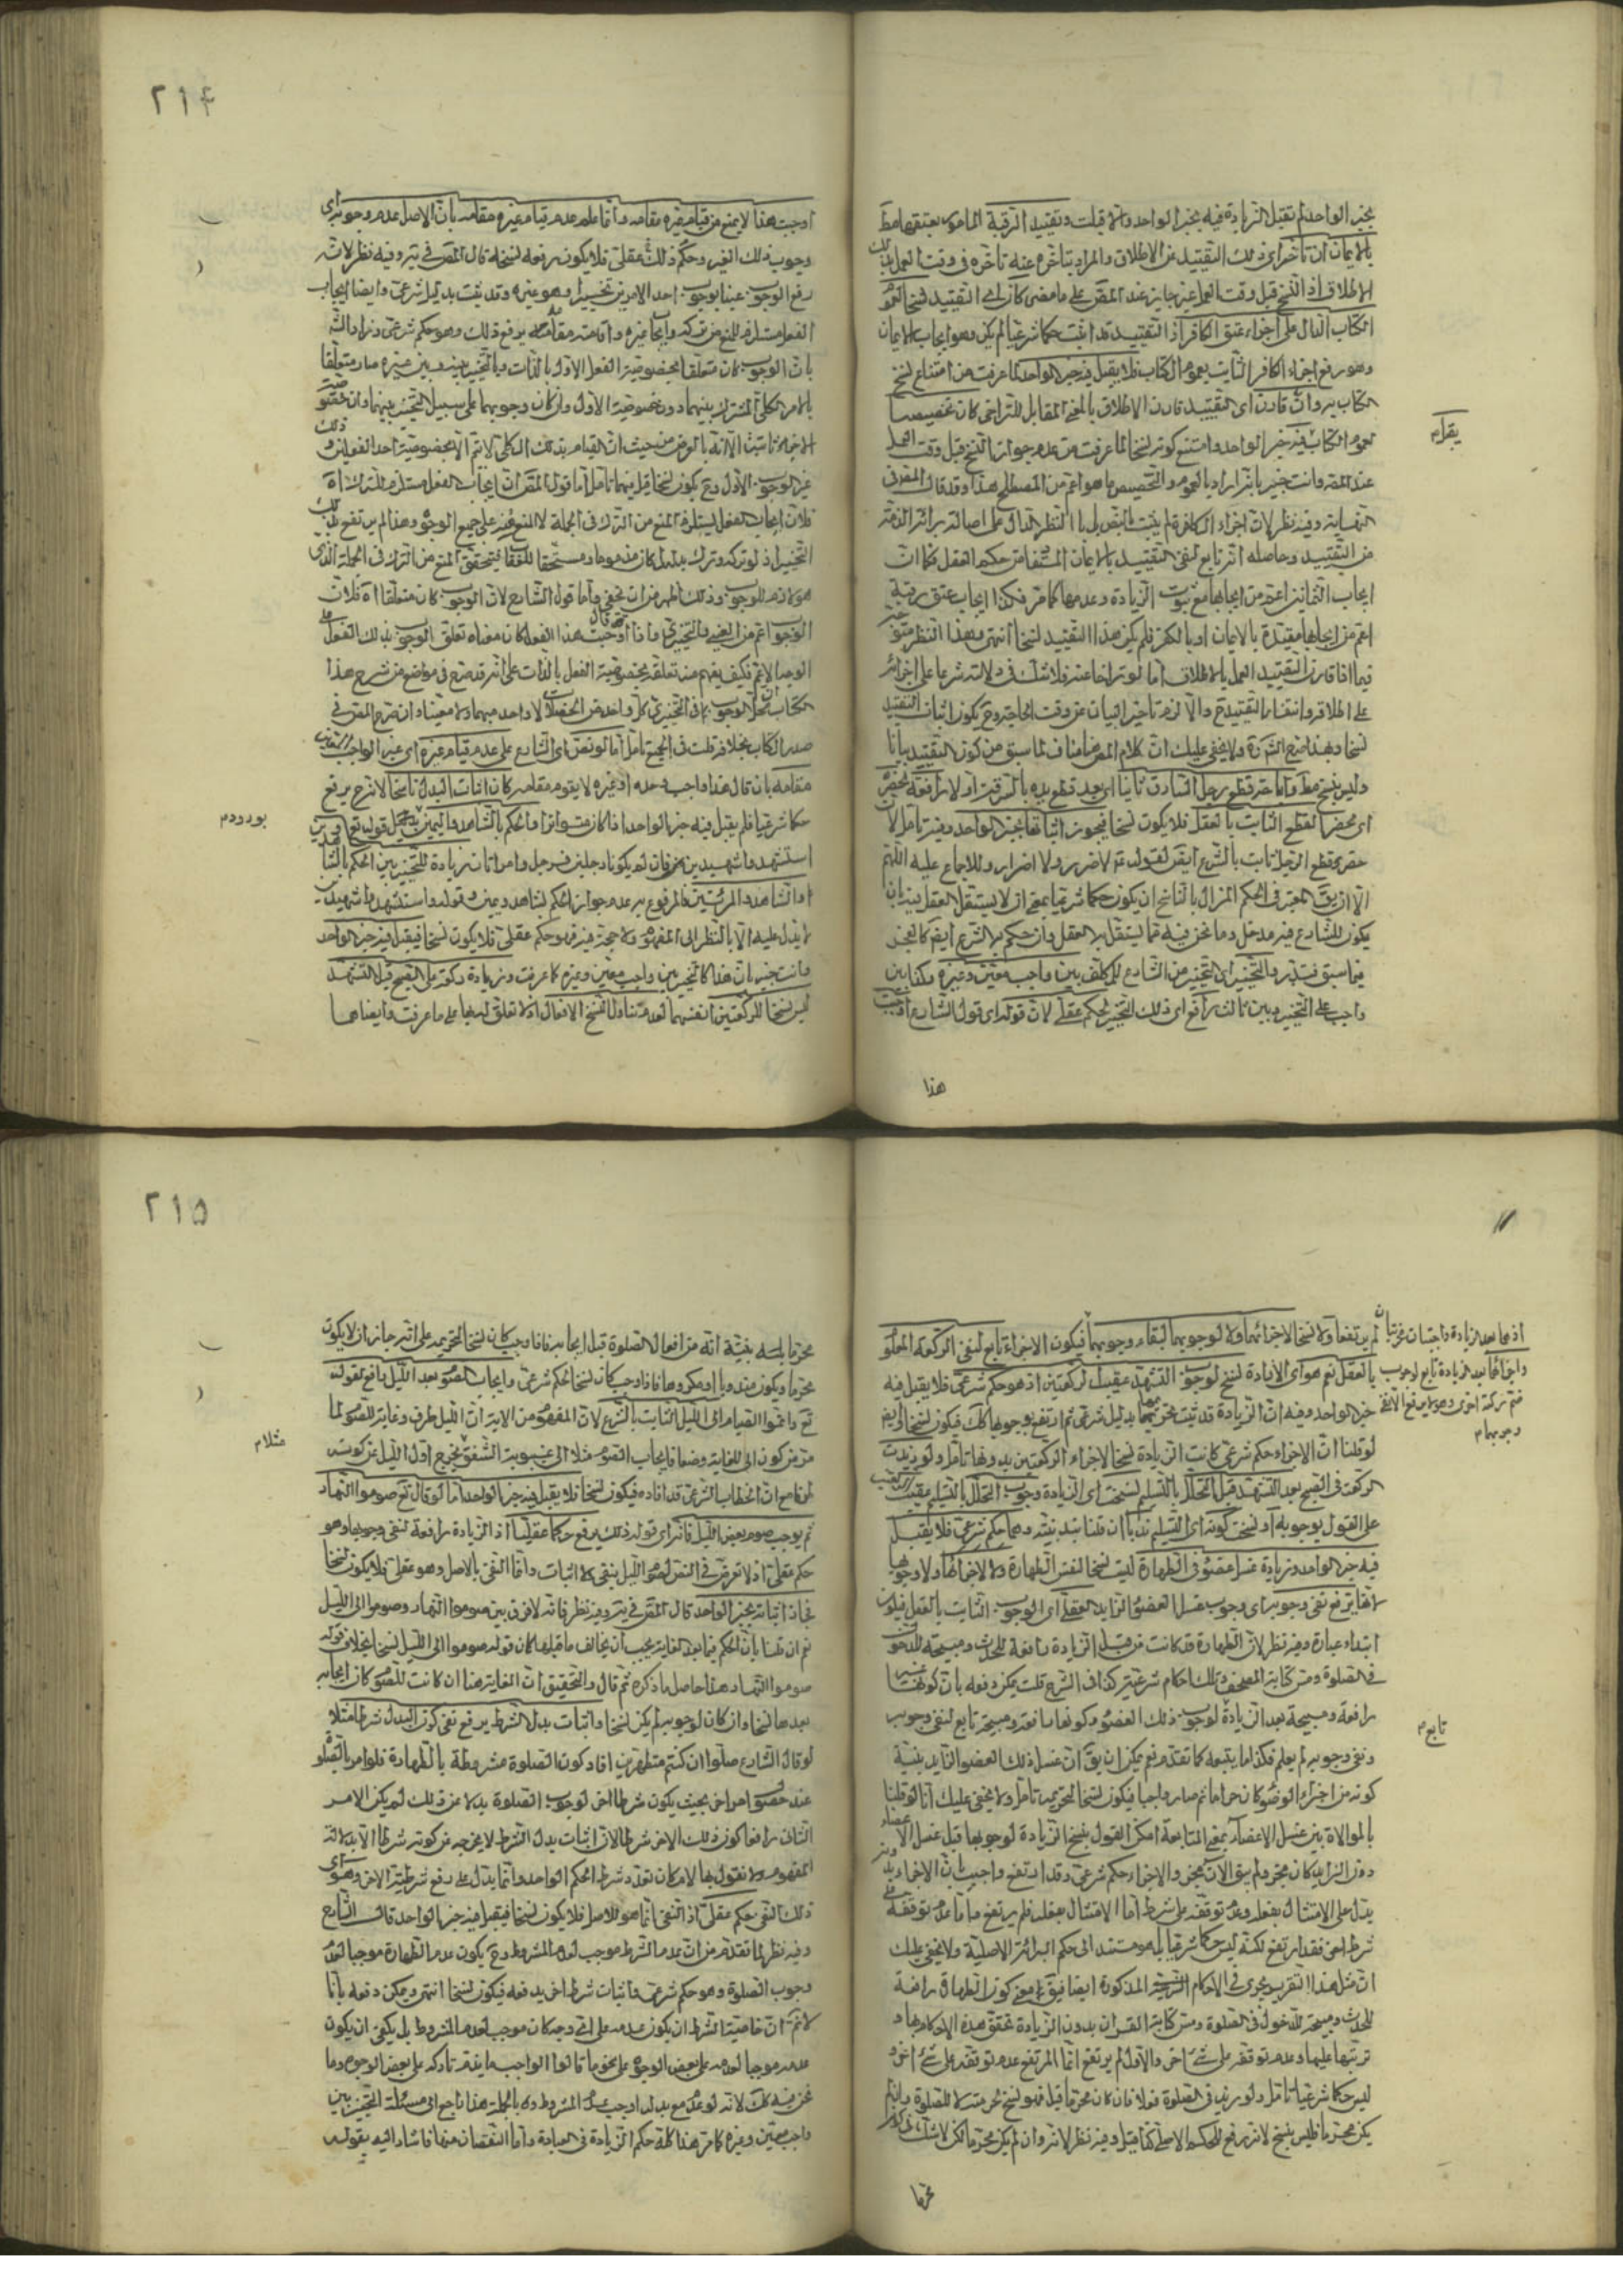 ٢١۴
بخبر الواحد لم تقبل الزيادة فيه بخبر الواحد والا قبلت وتقييد الرقبة المامور بعتقها مط
بالايمان ان تأخر اى ذلك التقييد عن الاطلاق والمراد بتأخره عنه تأخره فى وقت العمل بذلك
الاطلاق اذ النسخ قبل وقت العمل غير جايز عند المص على ما مضى كان اى التقييد نسخا لعموم
الكتاب الدال على اجزاء عتق الكافر اذ التقييد قد اثبت حكما شرعيا لم يكن وهو ايجاب الايمان
وهو رفع اجزاء الكافر الثابت بعموم الكتاب فلا يقبل فيه خبر الواحد لما عرفت من امتناع نسخ
الكتاب به وان قارن اى التقييد قارن الاطلاق بالمعنى المقابل للتراخى كان تخصيصا
لعموم الكتاب فيه خبر الواحد وامتنع كونه نسخا لما عرفت من عدم جواز النسخ قبل وقت العمل
يقبل م
عند المص وانت خبير بانه اراد بالعموم والتخصيص ما هو اعم من المصطلح هذا وقد قال المص فى
النهاية وفيه نظر لان اجزاء الكافرة لم يثبت بالنص بل بالنظر الدال على اصالة براءة الذمة
من التقييد وحاصله انه تابع لنفى التقييد بالايمان المستفاد من حكم العقل فكما ان
ايجاب الثمانين اعم من ايجابها مع ثبوت الزيادة وعدمها كما مر فكذا ايجاب عتق رقبة
اعم من ايجابها مقيدة بالايمان او بالكفر فلم يكن هذا التقييد نسخا انتهى وهذا النظر متوجه
فيما اذا قارن التقييد العمل بالاطلاق اما لو تراخا عنه فلا شك فى دلالته شرعا على اجزائه
على اطلاقه وانتفاء التقييد ح والا لزم تأخير البيان عن وقت الحاجة وح يكون اثبات التقييد
نسخا وبهذا صرح الشارح ولا يخفى عليك ان كلام المص مناف لما سبق من كون التقييد بيانا
وليس بنسخ مط واباحة قطع رجل السارق ثانيا اى بعد قطع يده بالسرقة اولا رافعة لحظره
اى محظر القطع الثابت بالعقل فلا يكون نسخا فيجوز اثباتها بخبر الواحد وفيه تأمل لان
حظر قطع الرجل ثابت بالشرع ايضا لقوله ع لا ضرر ولا اضرار وللاجماع عليه اللهم
الا ان يق المعتبر فى الحكم المزال بالناسخ ان يكون حكما شرعيا بمعنى ان لا يستقل العقل به بان
يكون للشارع فيه مدخل وما نحن فيه مما يستقل به العقل وان حكم به الشرع ايضا كالتخيير
فيما سبق فتدبر والتخيير اى التخيير من الشارع للمكلف بين واجب معين وغيره وكذا بين
واجب على التخيير وبين ثالث رافع اى ذلك التخيير لحكم عقلى لان قوله اى قول الشارع اوجبت
هذا
اوجبت هذا لا يمنع من قيام غيره مقامه وانما علم عدم قيام غيره مقامه بان الاصل عدم وجوبه اى
وجوب ذلك الغير وحكم ذلك عقلى فلا يكون رفعه نسخا قال المص فى يه وفيه نظر لانه
رفع الوجوب عينا بوجوب احد الامرين تخييرا وهو غيره وقد ثبت بدليل شرعى وايضا ايجاب
الفعل مستلزم للمنع من تركه وايجاب غيره واقامته مقامه يرفع ذلك وهو حكم شرعى وزاد الش
بان الوجوب كان متعلقا بخصوصية الفعل الاول بالذات وبالتخيير بينه وبين غيره صار متعلقا
بالامر الكلى المشترك بينهما دون خصوصية الاول وان كان وجوبهما على سبيل التخيير بينهما وان خصوصية
الاجزاء ثابتة الا انه بالعرض من حيث ان القيام بذلك الكلى لا تتم الا بخصوصية احد الفعلين وذلك
غير الوجوب الاول وح يكون نسخا قيل فيهما تأمل اما قول المص ان ايجاب الفعل مستلزم للترك اه
فلان ايجاب الفعل يستلزم المنع من الترك فى الجملة لا المنع منه على جميع الوجوه وهذا لم يرتفع بذلك
التخيير اذ لو تركه وترك بدله كان مذموما ومستحقا للعقاب فتحقق المنع من الترك فى الجملة الذى
هو لازم للوجوب وذلك اظهر من ان يخفى واما قول الشارح لان الوجوب كان متعلقا اه فلان
الوجوب اعم من العينى والتخييرى فاذا قال اوجبت هذا الفعل كان معناه تعلق الوجوب بذلك الفعل على
الوجه الاعم فكيف يفهم منه تعلقه بخصوصية الفعل بالذات على انه قد صرح فى مواضع من شرح هذا
الكتاب ان محل الوجوب فى التخييرى كل واحد من الخصلات لا واحد مبهما ولا معينا وان صرح المص فى
صدر الكتاب بخلافه قلت فى الجميع تأمل اما لو نص اى الشارع على عدم قيام غيره اى غير الواجب المعين
مقامه بان قال هذا واجب وحده او غيره لا يقوم مقامه كان اثبات البدل ناسخا لانه ح يرفع
حكما شرعيا فلم يقبل فيه خبر الواحد اذا كان متواترا والحكم بالشاهد واليمين
بورود م
استشهدوا شهيدين من رجالكم فان لم يكونا رجلين فرجل وامراتان زيادة للتخيير بين الحكم بالشاهدين
او الشاهد والمرئتين فالمرفوع به عدم جواز الحكم بشاهد ويمين وقوله واستشهدوا شهيدين
لا يدل عليه الا بالنظر الى المفهوم ولا حجة فيه فهو حكم عقلى فلا يكون نسخا فيقبل فيه خبر الواحد
وانت خبير بان هذا كالتخيير بين واجب معين وغيره كما عرفت وزيادة ركعة على الصبح قبل التشهد
ليس نسخا للركعتين انفسهما لعدم تناول النسخ الافعال اذ لا تعلق له بها على ما عرفت وايضا هما
٢١۵
لم يرتفعا ولا نسخا لاجزائهما ولا لوجوبهما لبقاء وجوبهما فيكون الاجزاء تابع لنفى الركعة المعلوم
اذ هما بعد الزيادة واجبتان مجزيتان
واجزائهما بعد الزيادة تابع لوجوب
ضم ركعة اخرى وهو انما يرفع الانفى
وجوبها م
بالعقل نعم هو اى الزيادة نسخ لوجوب التشهد عقيب الركعتين اذ هو حكم شرعى فلا يقبل فيه
خبر الواحد وفيه ان الزيادة قد ثبت تحريمها بدليل شرعى ثم ارتفع بوجوبها كك فيكون نسخا وايضا
لو قلنا ان الاجزاء حكم شرعى كانت الزيادة نسخا لاجزاء الركعتين بدونها تأمل ولو زيدت
الركعة فى الصبح بعد التشهد قبل التحلل بالتسليم نسخت اى الزيادة وجوب التحلل بالتسليم عقيب التشهد
على القول بوجوبه او نسخت كونه اى التسليم ندبا ان قلنا بندبيته وهما حكم شرعى فلا يقبل
فيه خبر الواحد وزيادة غسل عضو فى الطهارة ليست نسخا لنفس الطهارة ولا لاجزائها ولا وجوبها
لانها يرفع نفى وجوبه اى وجوب غسل العضو الزايد العقلى اى الوجوب الثابت بالعقل فيكون
ابتداء عبادة وفيه نظر لان الطهارة قد كانت من قبل الزيادة رافعة للحدث ومبيحة للدخول
فى الصلوة ومس كتابة المصحف وتلك احكام شرعية كذا فى الشرح قلت يمكن دفعه بان كونها
رافعة ومبيحة بعد الزيادة لوجوب ذلك العضو وكونها رافعة ومبيحة تابع لنفى وجوبه
تابع م
ونفى وجوبه لم يعلم فكذا ما يتبعه كما تقدم نعم يمكن ان يق ان غسل ذلك العضو الزايد بنية
كونه من اجزاء الوضوء كان حراما ثم صار واجبا فيكون نسخا لتحريمه تأمل ولا يخفى عليك انا لو قلنا
بالموالاة بين غسل الاعضاء بمعنى المتابعة امكن القول بنسخ الزيادة لوجوبها قبل غسل الاعضاء
دون الزايد كان مجز ولم يبق الان مجز والاجزاء حكم شرعى وقد ارتفع واجيب بان الاجزاء
يدل على الامتثال بفعله وعدم توقفه على شرط اما الامتثال بفعله فلم يرتفع واما عدم توقفه على
شرط اخر فقد ارتفع لكنه ليس حكما شرعيا بل هو مستند الى حكم البراءة الاصلية ولا يخفى عليك
ان مثل هذا التقرير يجرى فى الاحكام الشرعية المذكورة ايضا فيق معنى كون الطهارة رافعة
للحدث ومبيحة للدخول فى الصلوة ومس كتابة القران بدون الزيادة تحقق هذه الاحكام بها و
ترتبها عليها وعدم توقفه على شئ اخر والاول لم يرتفع انما المرتفع عدم توقفه على شئ اخر و
ليس حكما شرعيا تأمل ولو زيد فى الصلوة فعلا فان كان محرما قبل فهو نسخ لحرمته لا للصلوة وان لم
يكن محرما فليس بنسخ لانه رفع للحكم الاصلى كذا قيل وفيه نظر لانه وان لم يكن محرما لكن لا شك
محرما
محرما بنية انه من افعال الصلوة قبل ايجابه فاذا وجب كان نسخا لتحريمه على انه جاز ان لا يكون
محرما ويكون مندوبا او مكروها فاذا وجب كان نسخا لحكم شرعى وايجاب الصوم بعد الليل رافع لقوله
تع واتموا الصيام الى الليل الثابت بالشرع لان المفهوم من الاية ان الليل طرف وغاية للصوم لما
مر من كون الى للغاية وضعا فايجاب الصوم مثلا الى غيبوبة الشفق يخرج اول الليل عن كونه
مثلا م
طرفا مع ان الخطاب الشرعى قد افاده فيكون نسخا فلا يقبل فيه خبر الواحد اما لو قال تع صوموا النهار
ثم يوجب صوم بعض الليل فانه اى قوله ذلك يرفع حكما عقليا اذ الزيادة رافعة لنفى وجوبها وهو
حكم عقلى اذ لا تعرض فى النص لصوم الليل بنفى ولا اثبات وانما النفى بالاصل وهو عقلى فلا يكون نسخا
فجاز اثباته بخبر الواحد قال المص فى يه وفيه نظر فانه لا فرق بين صوموا النهار وصوموا الى الليل
نعم ان قلنا بان الحكم فيما بعد الغاية يجب ان يخالف ما قبلها كان قوله صوموا الى الليل نسخا بخلاف قوله
صوموا النهار هذا حاصل ما ذكره ثم قال والتحقيق ان الغاية هنا ان كانت للصوم كان ايجابه
بعدها نسخا وان كان لوجوبه لم يكن نسخا واثبات بدل الشرط يرفع نفى كون البدل شرطا مثلا
لو قال الشارع صلوا ان كنتم متطهرين افاد كون الصلوة مشروطة بالطهارة فلو امر بالصلوة
عند حصول امر اخر بحيث يكون شرطا اخر لوجوب الصلوة بدلا عن ذلك لم يكن الامر
الثانى رافعا كون ذلك الاخر شرطا لان اثبات بدل الشرط لا يخرجه عن كونه شرطا الا بدلالة
المفهوم ولا نقول بها لامكان تعدد شرط الحكم الواحد وانما يدل على رفع شرطية الاخر وهو اى
ذلك النفى حكم عقلى اذ النفى انما هو للاصل فلا يكون نسخا فيقبل فيه خبر الواحد قال الشارح
وفيه نظر لما تقدم من ان عدم الشرط موجب لعدم المشروط وح يكون عدم الطهارة موجبا لعدم
وجوب الصلوة وهو حكم شرعى واثبات شرط اخر يدفعه فيكون نسخا انتهى ويمكن دفعه بانا
لا نم ان خاصية الشرط ان يكون عدمه على اى وجه كان موجب لعدم المشروط بل يكفى ان يكون
عدمه موجبا لعدمه على بعض الوجوه على نحو ما قالوا الواجب ما يذم تاركه على بعض الوجوه وما
نحن فيه كك لانه لو عدم مع بدله اوجب عدم المشروط وبالجملة هذا راجع الى مسئلة التخيير بين
واجب معين وغيره كما مر هذا كله حكم الزيادة فى العبادة واما النقصان منها فاشار اليه بقوله